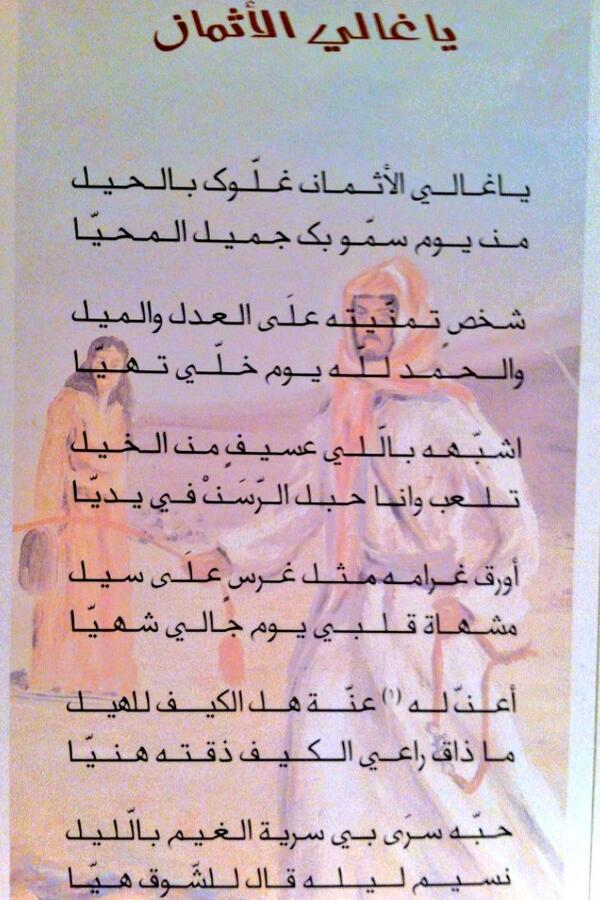 يا غالي الأثمان
يا غالي الأثمان غلّوك بالحيل
من يوم سمّو بك جميل المحيّا
شخصٍ تمنّيته علَى العدل والميل
والحمد لله يوم خلّي تهيّا
اشبّهه بالّلي عسيفٍ من الخيل
تلعب وانا حبل الرّسَنْ في يديّا
أورق غرامه مثل غرسٍ علَى سيل
مشهاة قلبي يوم جالي شهيّا
أعنّ له (١) عنّة هل الكيف للهيل
ما ذاق راعي الكيف ذقته هنيّا
حبّه سرَى بي سرية الغيم بالّليل
نسيم ليله قال للشّوق هيّا